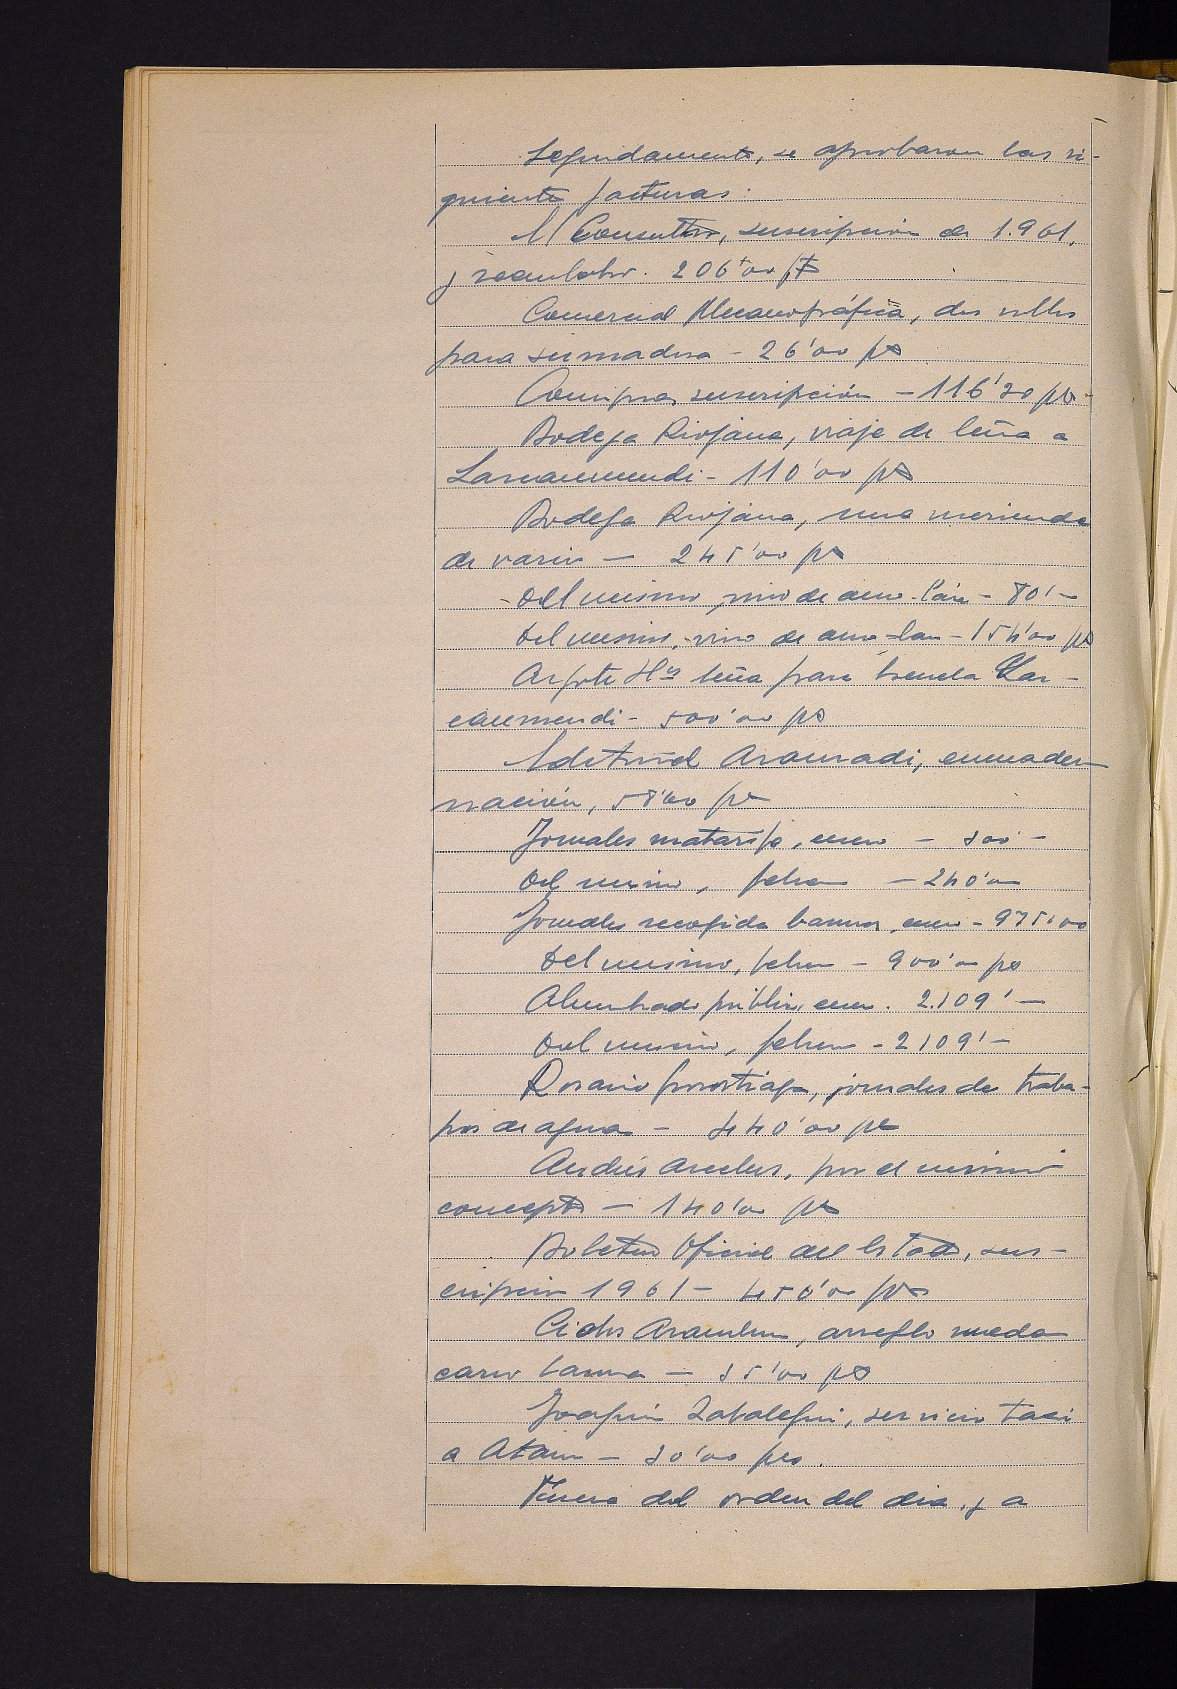 Segundamente, se aprobaron las si-
guiente facturas:
El Consultor, suscripción de 1.961,
y recambio. 206'00 pts
Comercial Mecanográfica, dos rollos
para sumadora - 26'00 pts
Compras suscripción - 116'30 pts-
Bodega Riojana, viaje de leña a
Larcaumundi - 110'00 pts
Bodega Riojana, una merienda
de varios — 245'00 pts
Del mismo, vino de auzo-lan - 80'-
Del mismo, vino de auzo-lan - 154'00 pts
Argote Hos leña para Escuela Lar-
caumendi - 500'00 pts
Editorial Aramradi, encuader-
nación, 58'60 pts
Jornales matarife, enero — 300'-
Del mismo, febrero — 240'00
Jornales recogida basuras, enero - 975'00
Del mismo, febrero - 900'00 pts
Alumbrado público, enero. 2.109'-
Del mismo, febrero - 2109'-
Rosario Gorostiaga, jornales de traba-
jos de agua — 440'00 pts
Andrés Arcelus, por el mismo
concepto — 140'00 pts
Boletín Oficial del Estado, sus-
cripción 1961 - 450'00 pts
Ciclos Aramburu, arreglo rueda
carro basura — 35'00 pts
Joaquín Zabalegui, servicio taxi
a Ataun — 30'00 pts.
Fuera del orden del dia, y a